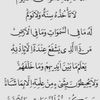 لَا تَأْخُذُهُ سِنَةٌ وَلَا نَوْمٌ
لَهُ مَا فِي السَّمَوَاتِ وَمَا فِي الْأَرْضِ
مَنْ ذَا الَّذِي يَشْفَعُ عِنْدَهُ إِلَّا بِإِذْنِهِ
يَعْلَمُ مَا بَيْنَ أَيْدِيهِمْ وَمَا خَلْفَهُمْ
وَلَا يُحِيطُونَ بِشَيْءٍ مِنْ عِلْمِهِ إِلَّا بِمَا شَاءَ